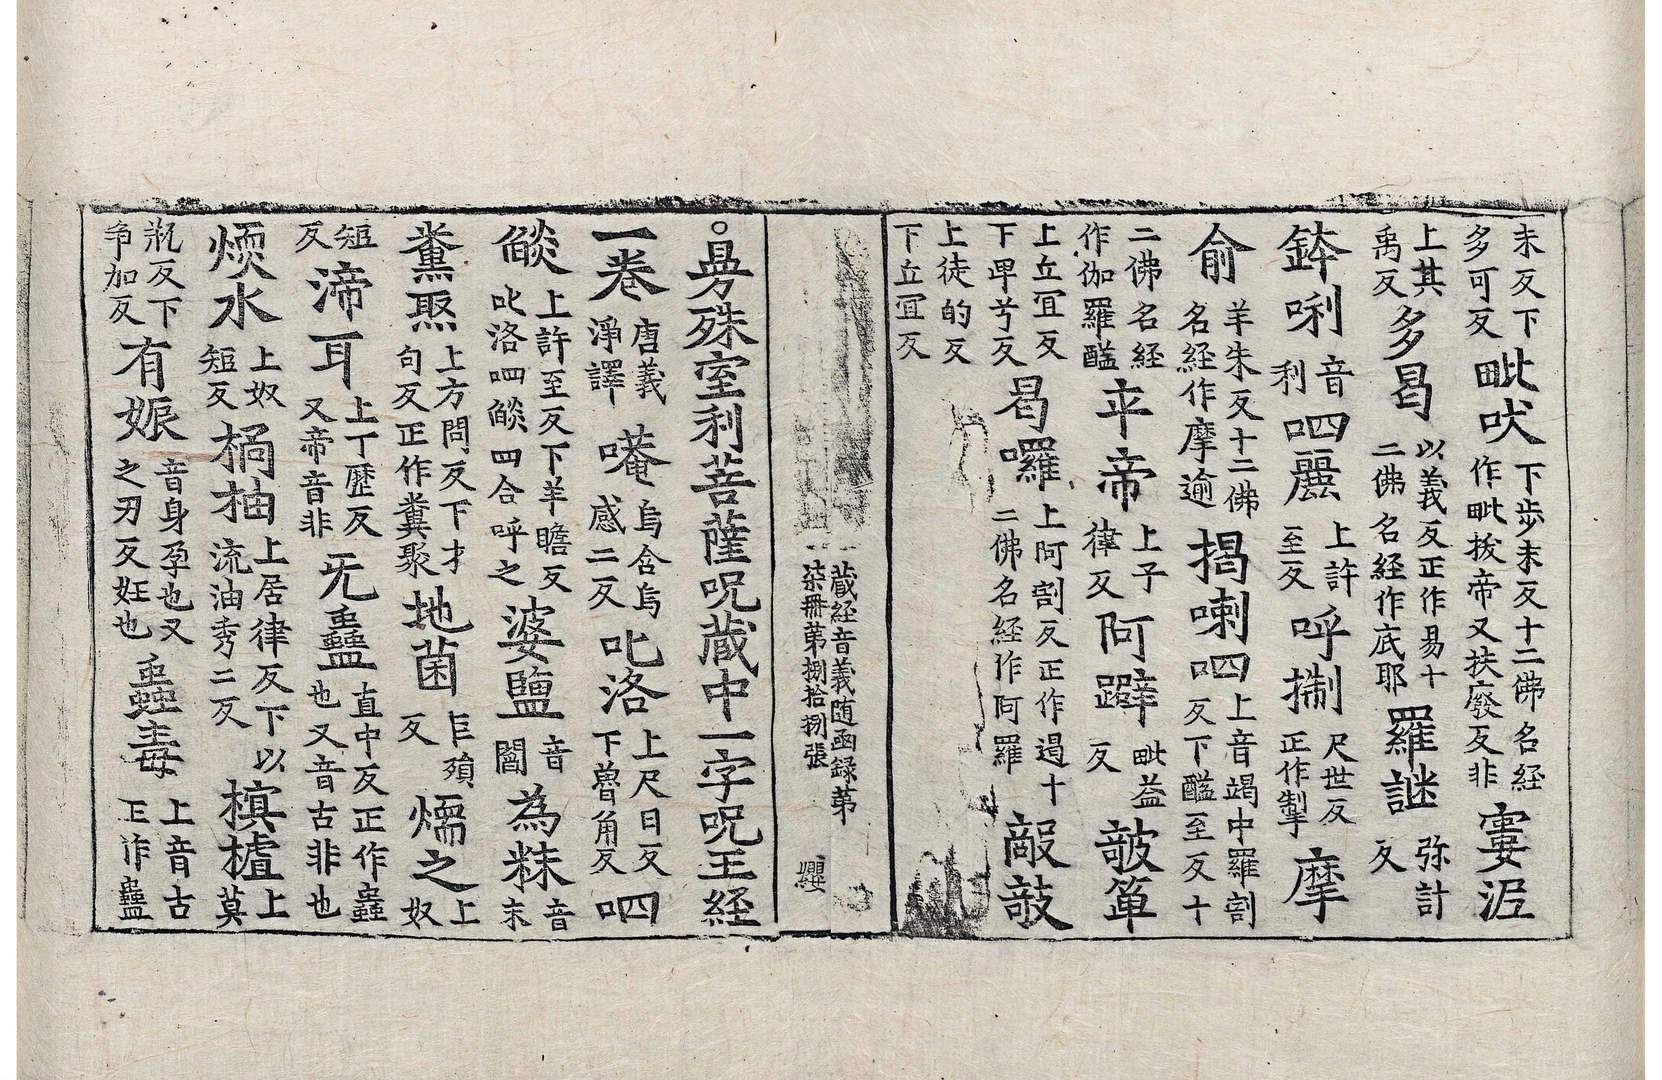 未反下多可反毗吠下步未反十二佛名經作毗拔帝又扶廢反非寠泥
上其禹反多曷以義反正作易十二佛名經作底耶羅謎弥計反
鉢唎音利呬麗上許至反呼㨷尺世反正作掣摩
俞羊朱反十二佛名經作摩逾揭喇呬上音竭中羅割反下醯至反十
二佛名經作伽羅醯平帝上子律反阿躃毗益反皷箄
上丘宜反下卑兮反曷囉上阿割反正作遏十二佛名經作阿羅敲敼
上徒的反下丘宜反
藏經音義随函録第
柒冊第捌拾捌張 纓
。㬅殊室利菩薩呪藏中一字呪王經
一卷唐義淨譯唵烏含烏感二反叱洛上尺日反下魯角反呬
㷔上許至反下羊贍反叱洛呬㷔四合呼之婆鹽音閻為粖音末
糞聚上方問反下才句反正作糞聚地菌巨殞反㷔之上奴
短反渧耳上丁歷反又帝音非旡蠱直中反正作蟲也又音古非也
煗水上奴短反橘柚上居律反下以流油秀二反樻樝上莫
瓶反下爭加反有娠音身孕也又之刃反妊也蠱毒上音古正作蠱